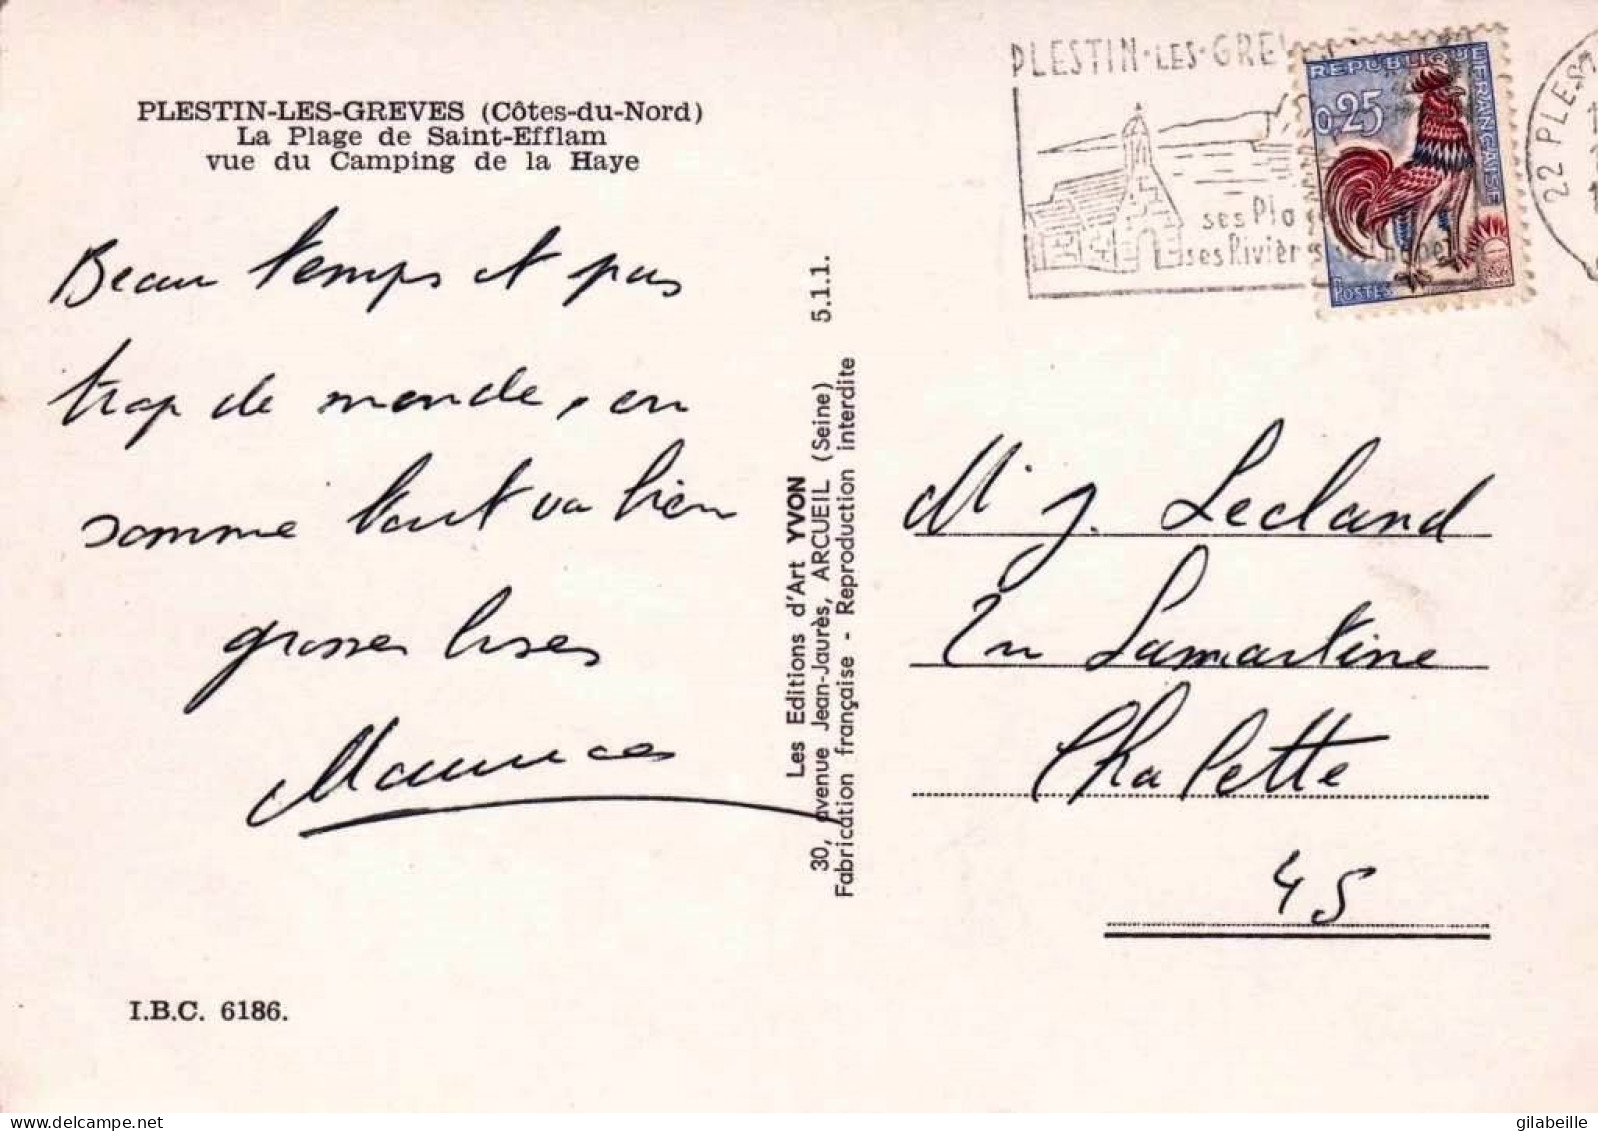 PLESTIN-LES-GREVES (Côtes-du-Nord)
La Plage de Saint-Efflam
vue du Camping de la Haye
Beau temps et pas
trop de monde, en
somme tout va bien
grosses bises
Maurice
I.B.C. 6186.
Les Editions d'Art YVON 5.1.1.
30, avenue Jean-Jaurès, ARCUEIL (Seine)
Fabrication française - Reproduction interdite
PLESTIN·LES·GRE
ses Pla
ses Rivièr
REPUBLIQUE FRANÇAISE
0,25
POSTES
22 PLEST
M J. Lecland
Lamartine
Chalette
45
gilabeille